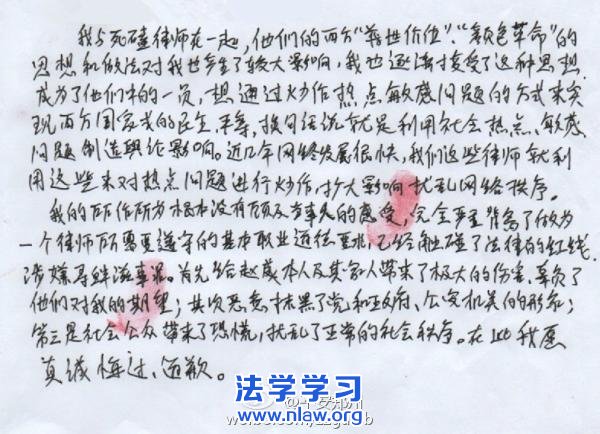 我与死磕律师在一起，他们的西方“普世价值”、“颜色革命”的
思想和做法对我也产生了较大影响，我也逐渐接受了这种思想，
成为了他们中的一员，想通过炒作热点敏感问题的方式来实
现西方国家式的民主、平等，换句话说就是利用社会热点、敏感
问题制造舆论影响。近几年网络发展很快，我们这些律师就利
用这些来对热点问题进行炒作，扩大影响，扰乱网络秩序。
我的所作所为根本没有顾及当事人的感受，完全严重背离了做为
一个律师所需要遵守的基本职业道德要求，已经触碰了法律的红线，
涉嫌寻衅滋事罪。首先给赵威本人及其家人带来了极大的伤害，辜负了
他们对我的期望；其次恶意抹黑了党和政府、公安机关的形象；
第三是社会公众带来了恐慌，扰乱了正常的社会秩序。在此我愿
真诚悔过、道歉。
法学学习
www.nlaw.org